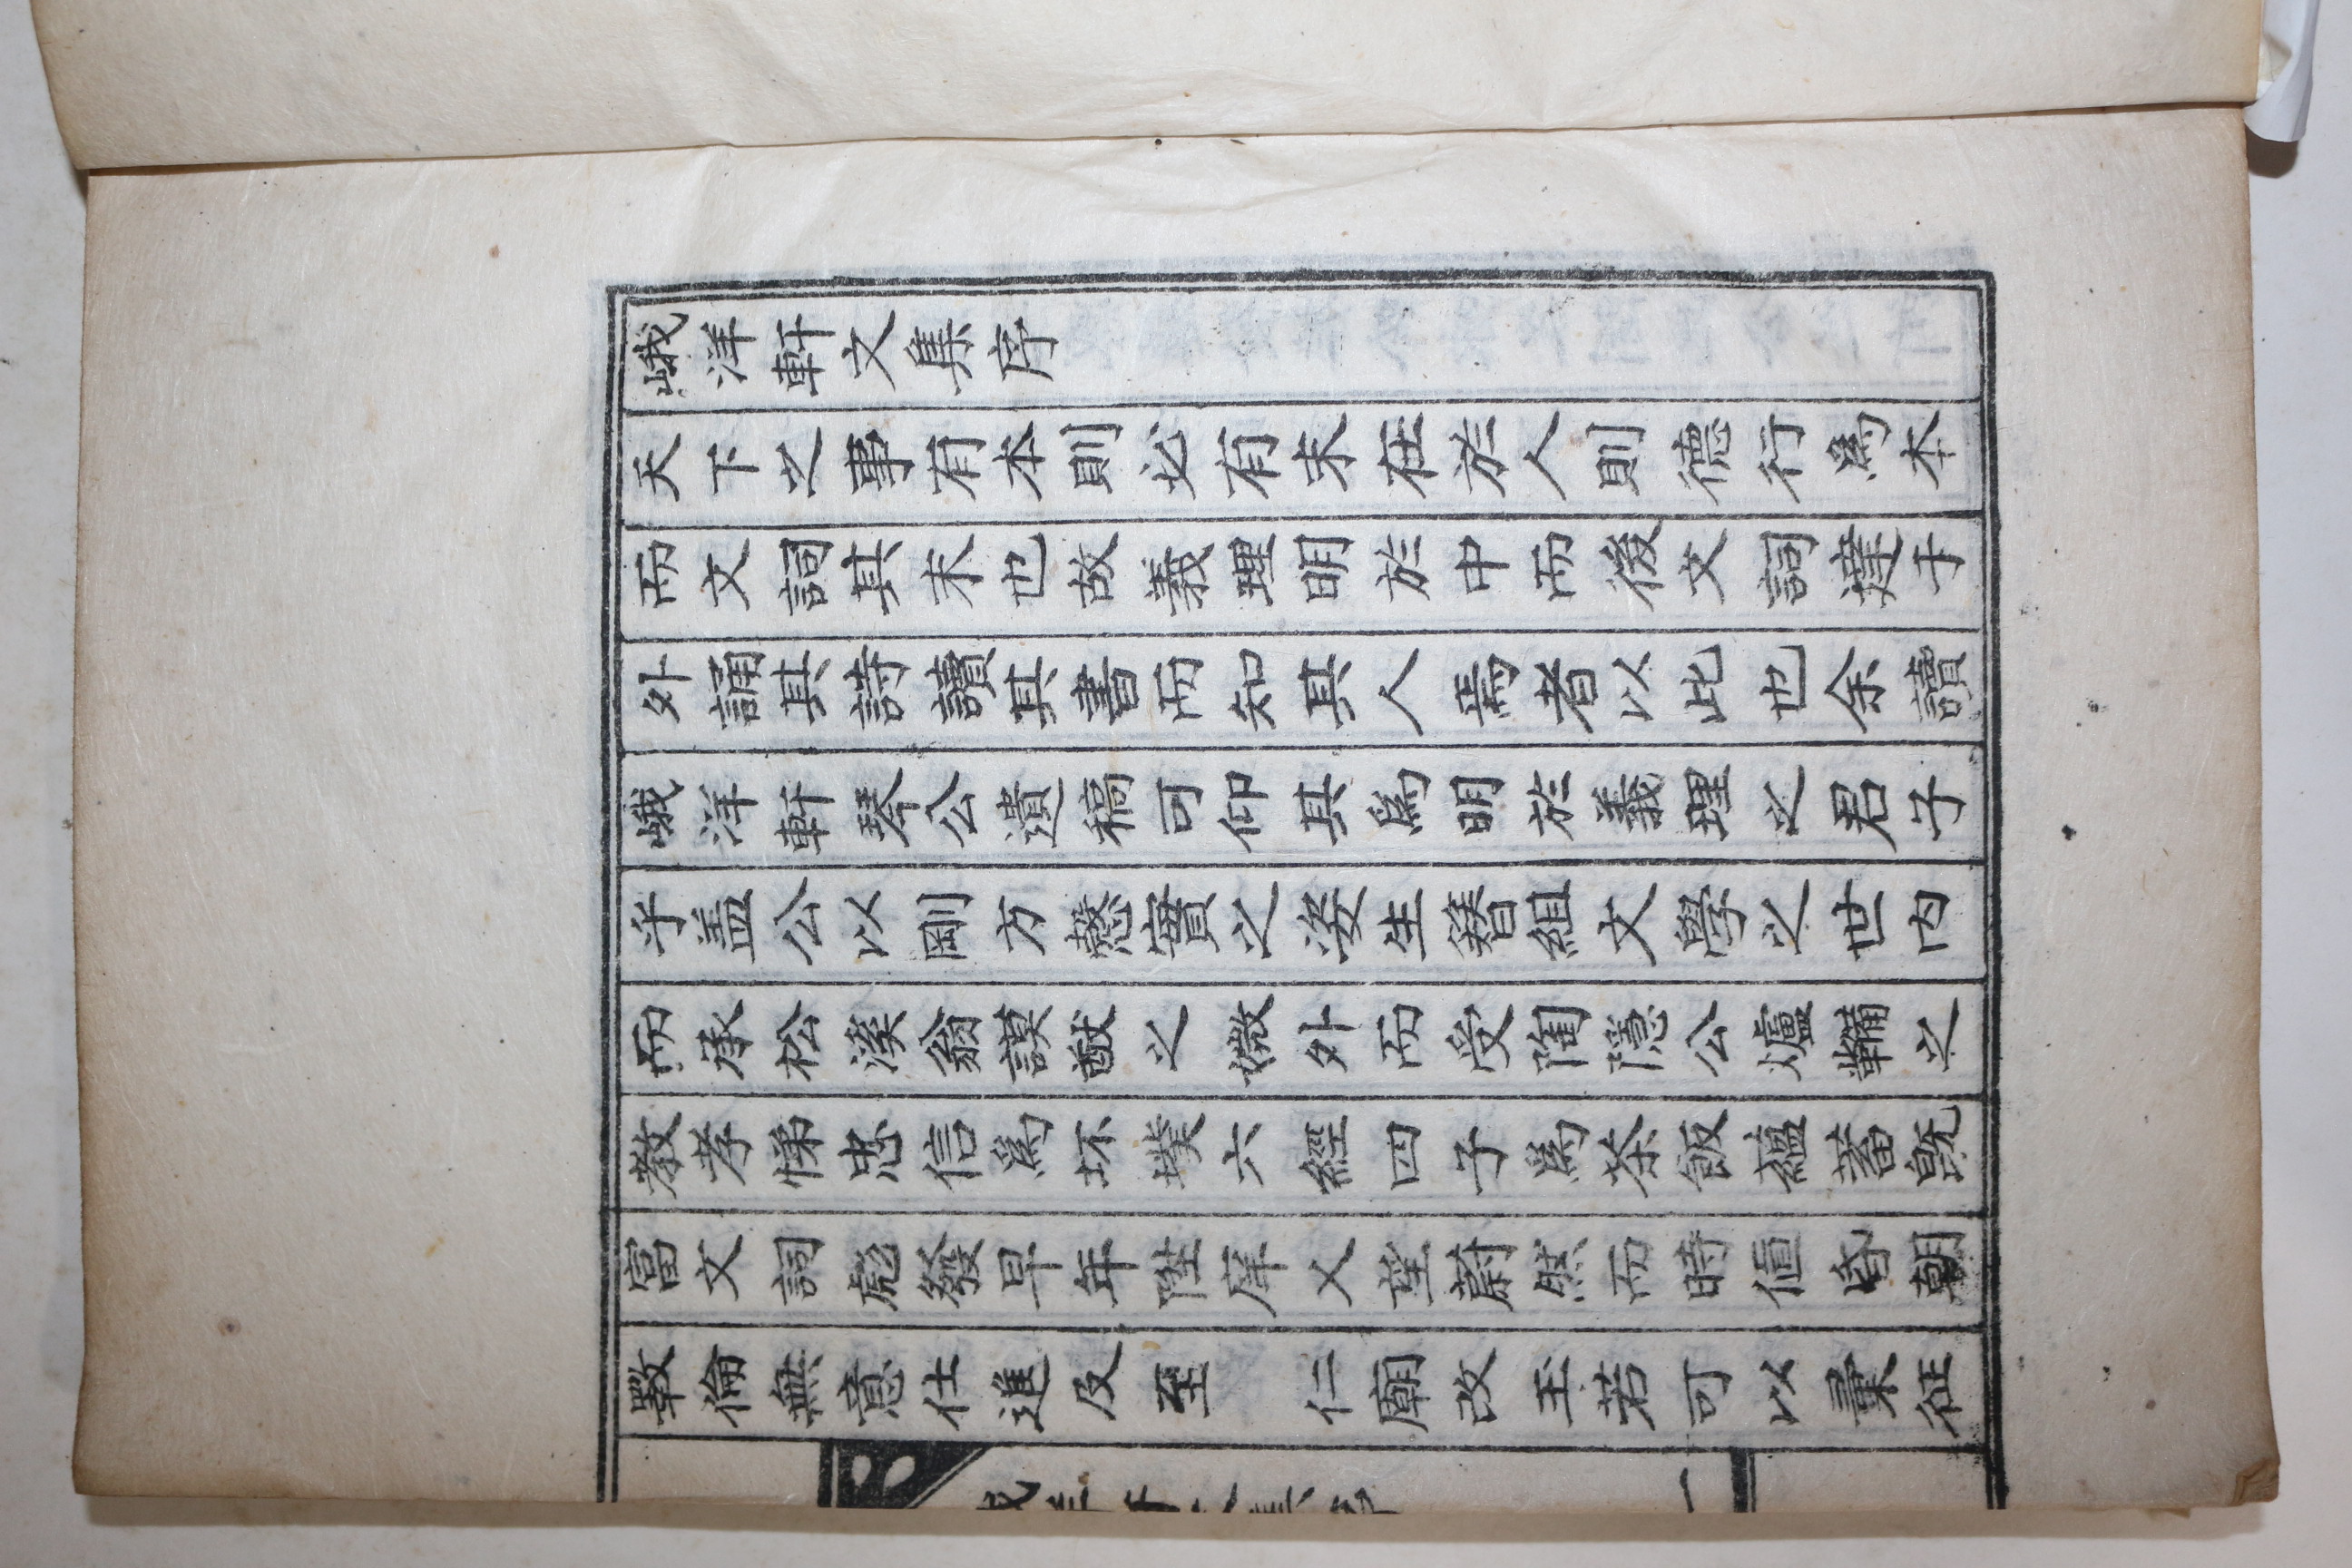 峨洋軒文集序
天下之事有本則必有末在於人則德行爲本
而文詞其末也故義理明於中而後文詞達于
外誦其詩讀其書而知其人焉者以此也余讀
峨洋軒琴公遺稿可仰其爲明於義理之君子
乎盖公以剛方慤實之姿生簪組文學之世内
而承松溪翁謨猷之媺外而受陶隱公爐鞴之
教孝悌忠信爲坏墣六經四子爲茶飯蘊蓄旣
富文詞彪發早年陞庠乂望蔚然而時値昏朝
斁倫無意仕進及至 仁廟改玉若可以彙征
一